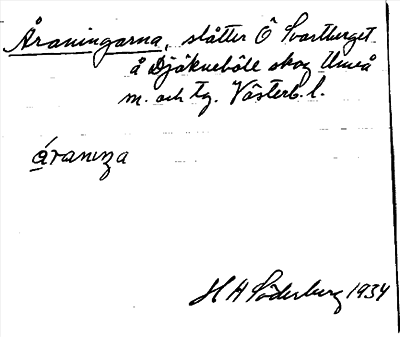 Åraningarna, slåtter Ö Svartberget
å Djäkneböle skog Umeå
m. och tg. Västerb. l.
áranıŋa
H A Söderberg 1934